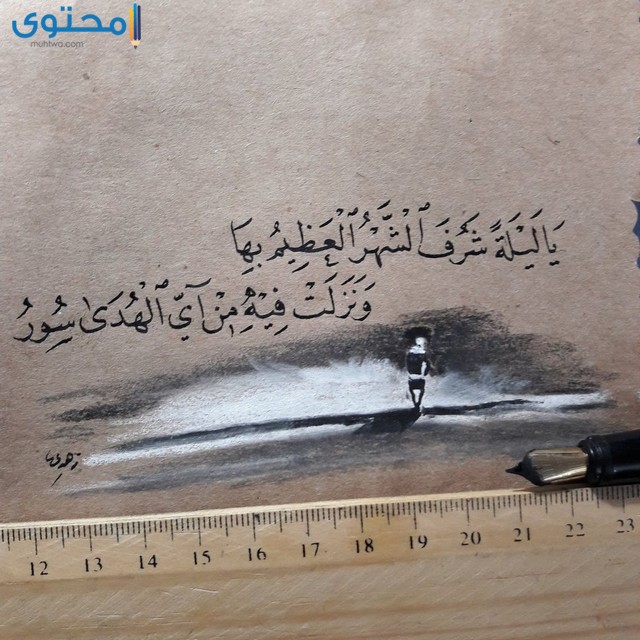 محتوى
muhtwa.com
يَا لَيْلَةً شَرُفَ ٱلْشَّهْرُ ٱلْعَظِيمُ بِهَا
وَنَزَلَتْ فِيْهِ مِنْ آيِّ ٱلْهُدَىٰ سُوَرُ
12 13 14 15 16 17 18 19 20 21 22 23